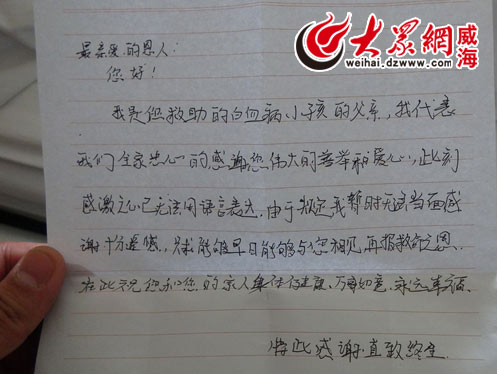 大众網 威海
weihai.dzwww.com
最亲爱的恩人:
您好!
我是您救助的白血病小孩的父亲,我代表
我们全家忠心的感谢您伟大的善举和爱心,此刻
感激之心已无法用语言表达.由于规定我暂时无法当面感
谢十分遗憾.只求能够早日能够与您相见,再报救命之恩.
在此祝您和您的家人身体健康、万事如意、永远幸福.
特此感谢.直致终生.